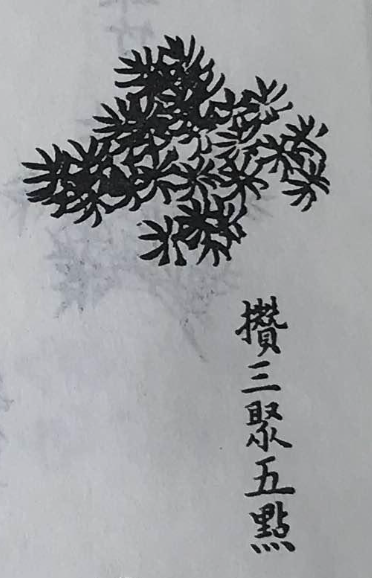 攢三聚五點